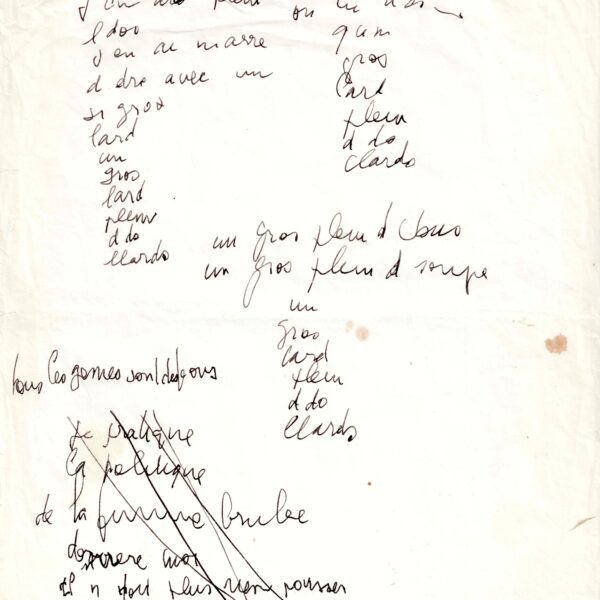 plein
l doo
j en ai marre
d dra avec un
si gros
lard
un
gros
lard
plein
d do
llardo
gros
lard
plein
d do
clardo
un gros plein d
un gros plein d soupe
un
gros
lard
plein
d do
llards
tous les gomes sont des gons
je pratique
la politique
de la brulee
derriere moi
il n plus rien pousser